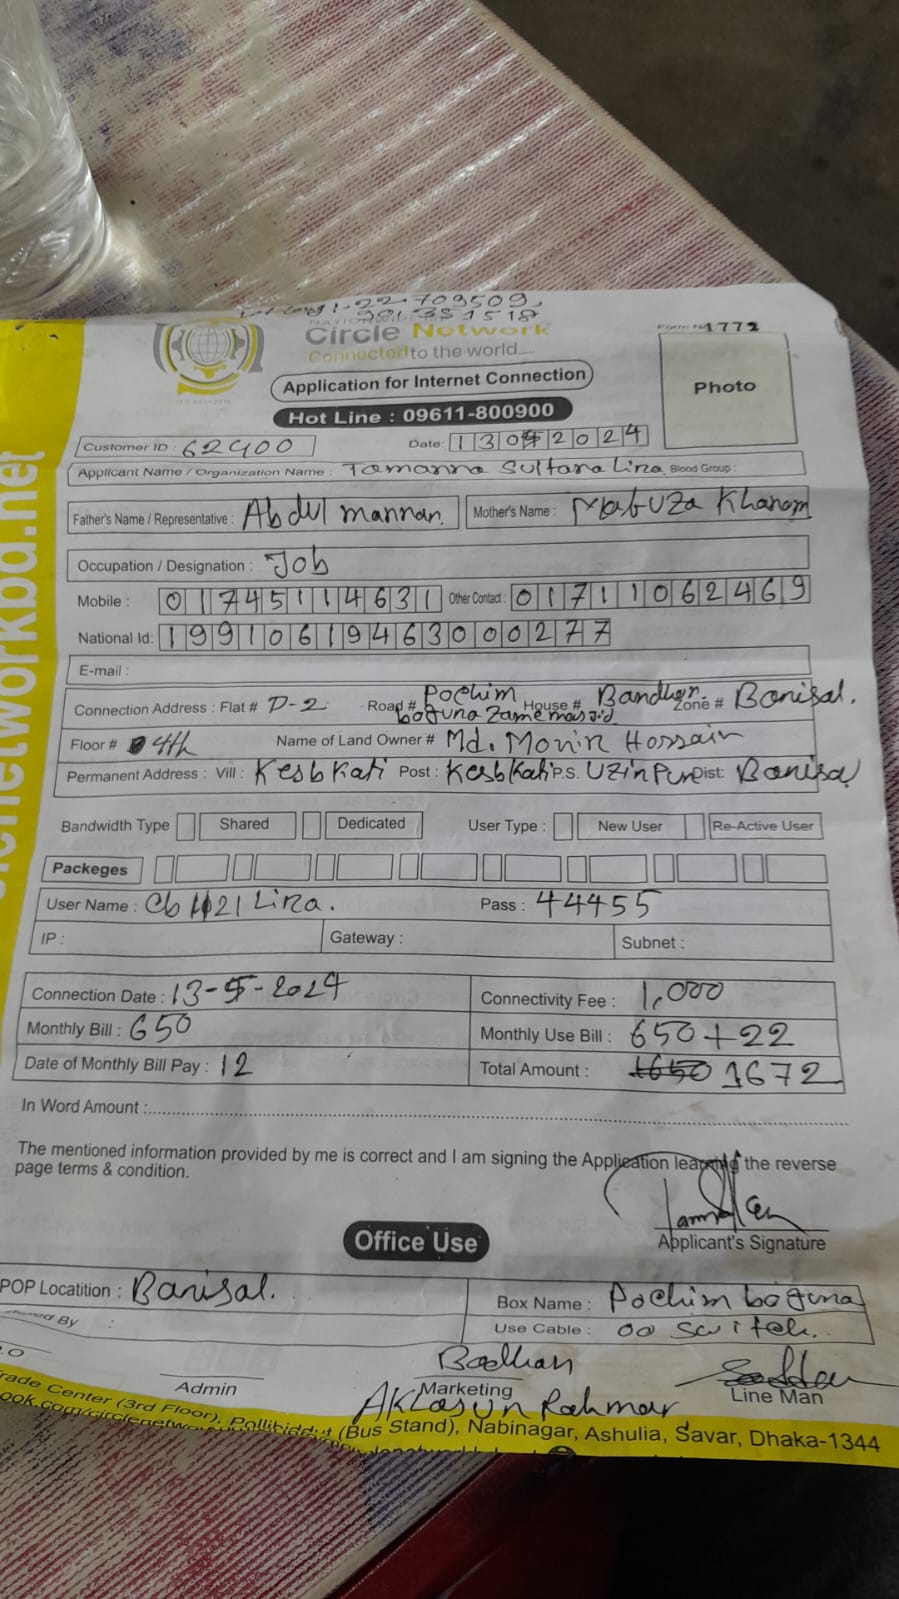 22.709509,
90.351518
Circle Network
Connected to the world.....
1772
Photo
Application for Internet Connection
Hot Line : 09611-800900
Customer ID : 62400
Date: 13052024
Applicant Name / Organization Name : Tamanna Sultana Lina Blood Group :
Father's Name / Representative : Abdul mannan. Mother's Name : Mabuza Khanom
Occupation / Designation : Job
Mobile : 01745114631 Other Contact : 01711062469
National Id: 19910619463000277
E-mail :
Connection Address : Flat # D-2 Road # Pochim boguna Zame masjid House # Bandhon Zone # Barisal.
Floor # 4th Name of Land Owner # Md. Monir Hossain
Permanent Address : Vill : Kesb Kati Post : Kesb Kati P.S. UZirPur Dist: Barisal
Bandwidth Type Shared Dedicated User Type : New User Re-Active User
Packeges
User Name : Lina. Pass : 44455
IP : Gateway : Subnet :
Connection Date : 13-5-2024 Connectivity Fee : 1,000
Monthly Bill : 650 Monthly Use Bill : 650+22
Date of Monthly Bill Pay : 12 Total Amount : 1650 1672
In Word Amount :
The mentioned information provided by me is correct and I am signing the Application learning the reverse
page terms & condition.
Applicant's Signature
Office Use
POP Locatition : Barisal. Box Name : Pochim boguna
Use Cable : 00 switch.
Badhan
Admin Marketing Line Man
Rahman
Trade Center (3rd Floor), Pollibiddut (Bus Stand), Nabinagar, Ashulia, Savar, Dhaka-1344